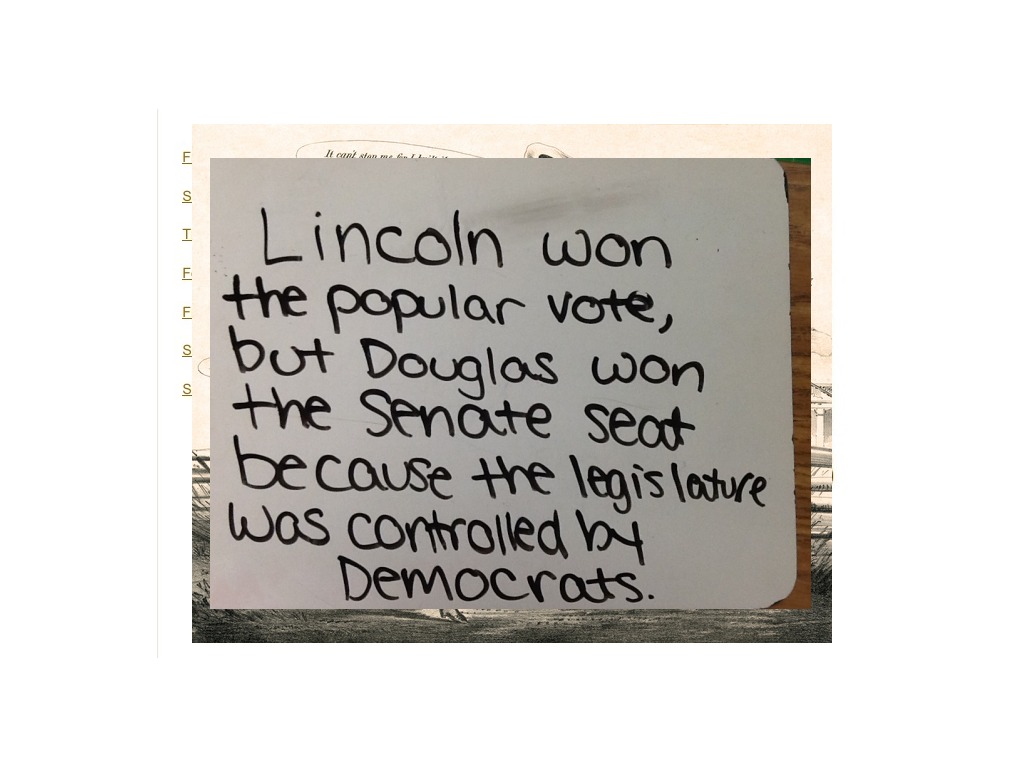 It can't stop me for I built it
F
S
T
F
F
S
S
Lincoln won
the popular vote,
but Douglas won
the Senate seat
because the legislature
was controlled by
Democrats.